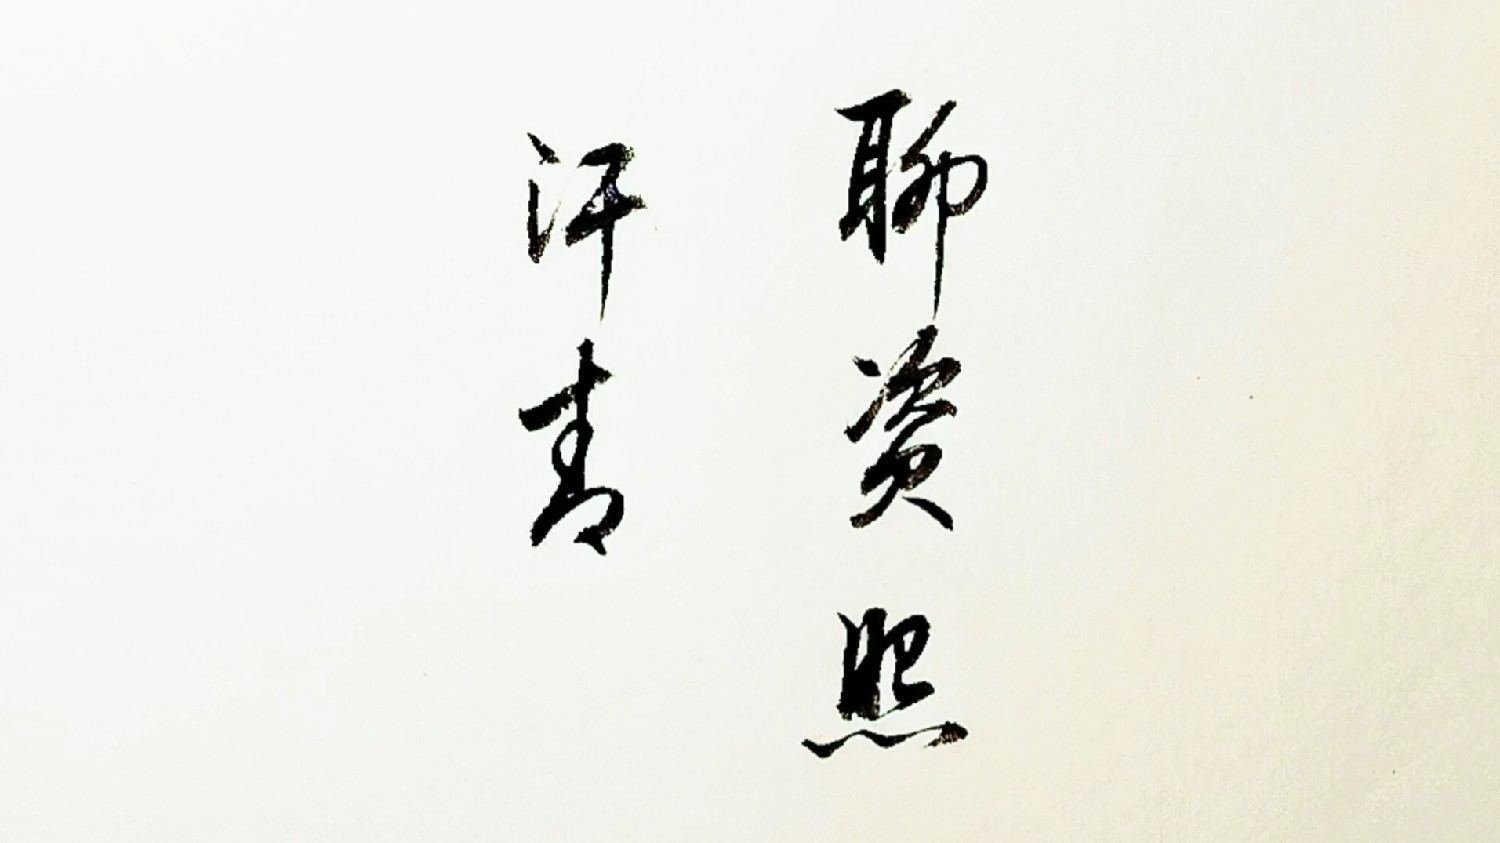 聊资照
汗青